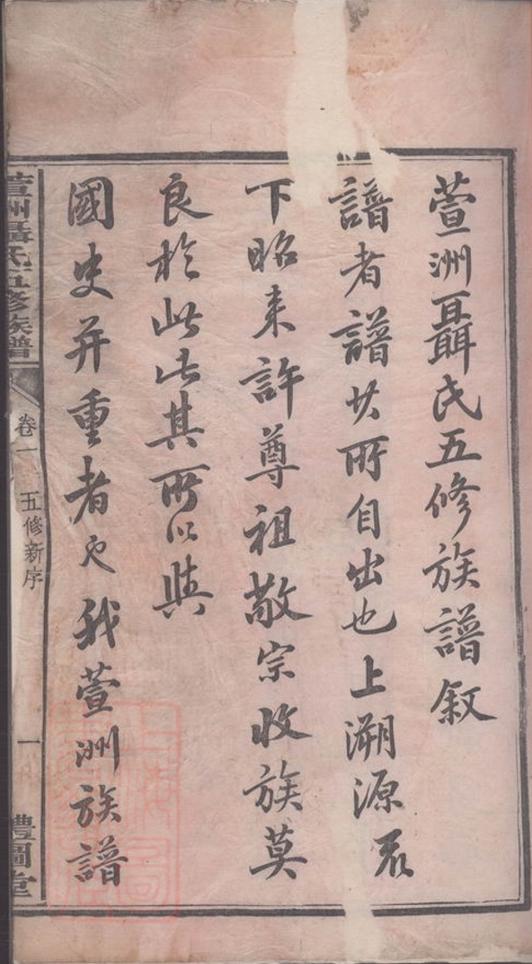 萱洲聶氏五修族譜叙
譜者譜其所自出也上溯源
下昭来許尊祖敬宗收族莫
良於此此其所以與
國史并重者也我萱洲族譜
萱洲聶氏五修族譜
卷一
五修新序
一
禮圃堂